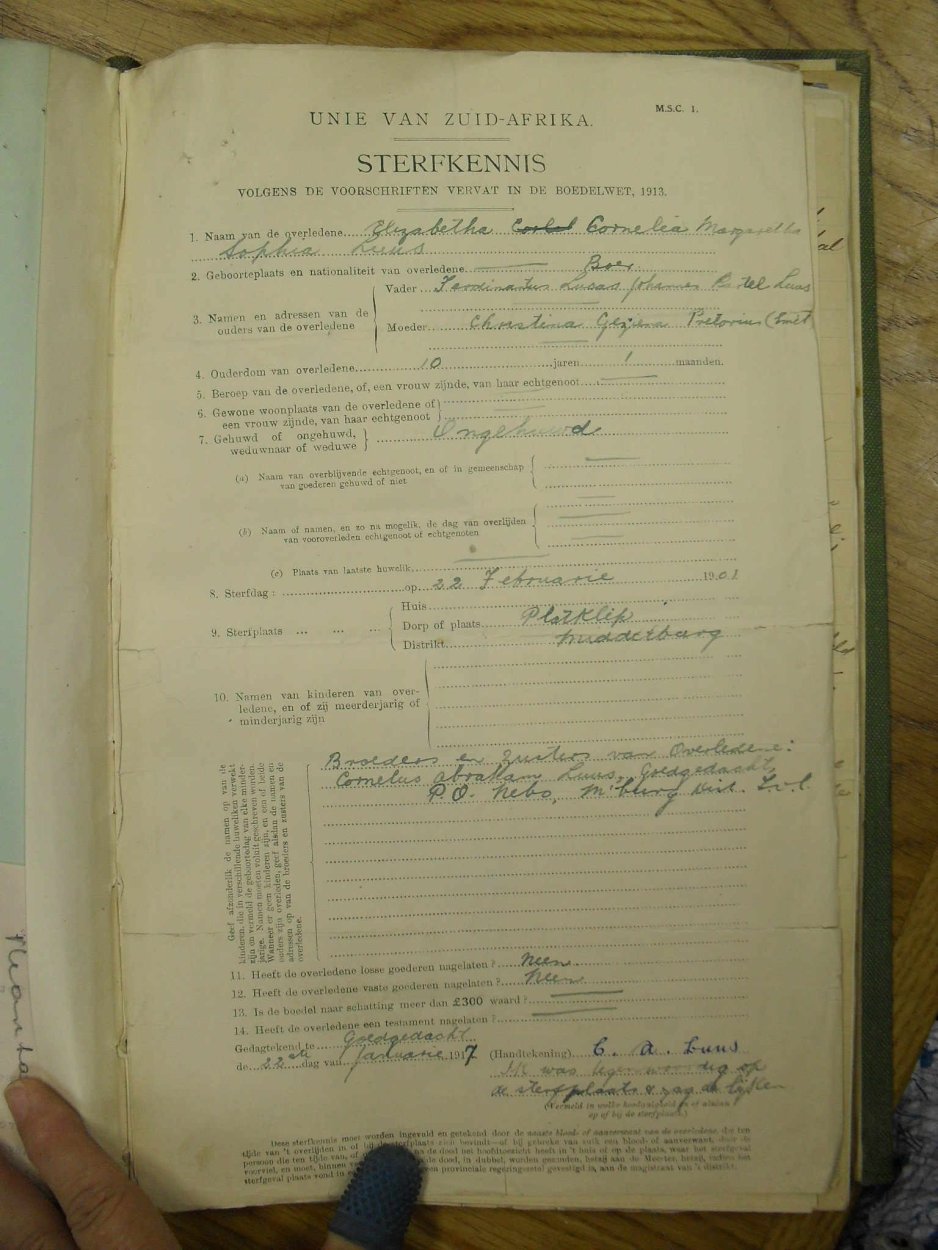 M.S.C. 1.
UNIE VAN ZUID-AFRIKA.
STERFKENNIS
VOLGENS DE VOORSCHRIFTEN VERVAT IN DE BOEDELWET, 1913.
1. Naam van de overledene Elizabetha Cornelia Margaretha
Sophia Luus
2. Geboorteplaats en nationaliteit van overledene Boer
3. Namen en adressen van de ouders van de overledene
Vader Ferdinandus Lucas Johannes Luus
Moeder Christina Pretorius (Smit
4. Ouderdom van overledene 10 jaren 1 maanden.
5. Beroep van de overledene, of, een vrouw zijnde, van haar echtgenoot
6. Gewone woonplaats van de overledene of
een vrouw zijnde, van haar echtgenoot
7. Gehuwd of ongehuwd,
weduwnaar of weduwe
Ongehuwd
(a) Naam van overblijvende echtgenoot, en of in gemeenschap
van goederen gehuwd of niet
(b) Naam of namen, en zo na mogelik, de dag van overlijden
van vooroverleden echtgenoot of echtgenoten
(c) Plaats van laatste huwelik
8. Sterfdag : op 22 Februarie 1901
9. Sterfplaats ... ... ...
Huis
Dorp of plaats Platklip
Distrikt Middelburg
10. Namen van kinderen van over-
ledene, en of zij meerderjarig of
minderjarig zijn
Geef afzonderlik de namen op van de
kinderen, die in verschillende huweliken verwekt
zijn en vermeld de geboortedag van elke minder-
jarige. Namen moeten voluit geschreven worden.
Wanneer er geen kinderen zijn, en een of beide
ouders zijn overleden, geef alsdan de namen en
adressen op van de broeders en zusters van de
overledene.
Broeders en Zusters van Overledene:
Cornelus Abraham Luus, Goedgedacht,
P.O. Nebo, M'burg Dist. Tvl.
11. Heeft de overledene losse goederen nagelaten ? Neen
12. Heeft de overledene vaste goederen nagelaten ? Neen
13. Is de boedel naar schatting meer dan £300 waard ?
14. Heeft de overledene een testament nagelaten ?
Gedagtekend te Goedgedacht
de 22ste dag van Januarie 1917
(Handtekening) C. A. Luus
Ik was tegenwoordig op
de sterfplaats & zag de lijken
(Vermeld in welke hoedanigheid en of aldaar
op of bij de sterfplaats.)
Deze sterfkennis moet worden ingevuld en getekend door de naaste bloed- of aanverwant van de overledene, die ten
tijde van 't overlijden in of bij de sterfplaats zich bevindt—of bij gebreke van zulk een bloed- of aanverwant, door de
persoon die ten tijde van, of na de dood het hoofdtoezicht heeft in 't huis of op de plaats, waar het sterfgeval
voorviel, en moet, binnen de dood, in dubbel, worden gezonden, hetzij aan de Meester, hetzij, indien het
sterfgeval plaats vond in provinciale regeringszetel gevestigd is, aan de magistraat van 't distrikt.